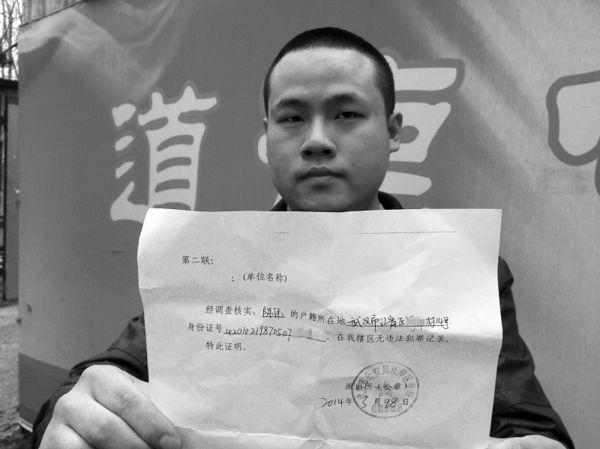 道
第二联:
: (单位名称)
经调查核实, 的户籍所在地 武汉市江岸区 村
身份证号 42010219870507 , 在我辖区无违法犯罪记录。
特此证明。
派出所(公章)
2014年3月28日